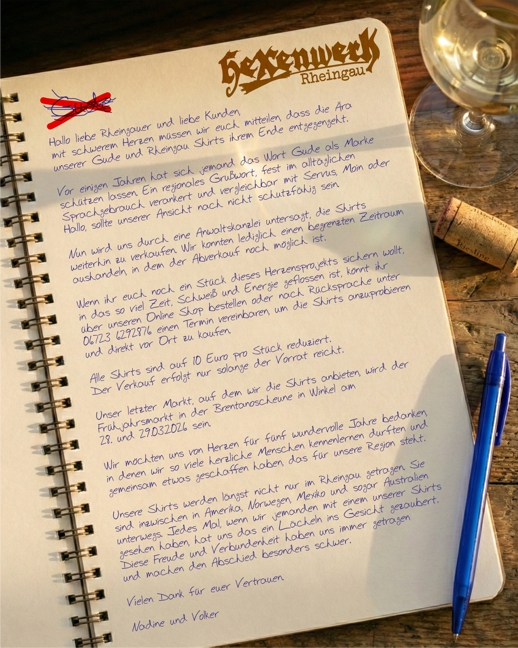 Hexenwerk
Rheingau
Hallo liebe Rheingauer und liebe Kunden,
mit schwerem Herzen müssen wir euch mitteilen, dass die Ära
unserer Gude und Rheingau Shirts ihrem Ende entgegengeht.
Vor einigen Jahren hat sich jemand das Wort Gude als Marke
schützen lassen. Ein regionales Grußwort, fest im alltäglichen
Sprachgebrauch verankert und vergleichbar mit Servus, Moin oder
Hallo, sollte unserer Ansicht nach nicht schutzfähig sein.
Nun wird uns durch eine Anwaltskanzlei untersagt, die Shirts
weiterhin zu verkaufen. Wir konnten lediglich einen begrenzten Zeitraum
aushandeln, in dem der Abverkauf noch möglich ist.
Wenn ihr euch noch ein Stück dieses Herzensprojekts sichern wollt,
in das so viel Zeit, Schweiß und Energie geflossen ist, könnt ihr
über unseren Online Shop bestellen oder nach Rücksprache unter
06723 6292876 einen Termin vereinbaren, um die Shirts anzuprobieren
und direkt vor Ort zu kaufen.
Alle Shirts sind auf 10 Euro pro Stück reduziert.
Der Verkauf erfolgt nur solange der Vorrat reicht.
Unser letzter Markt, auf dem wir die Shirts anbieten, wird der
Frühjahrsmarkt in der Brentanoscheune in Winkel am
28. und 29.03.2026 sein.
Wir möchten uns von Herzen für fünf wundervolle Jahre bedanken,
in denen wir so viele herzliche Menschen kennenlernen durften und
gemeinsam etwas geschaffen haben, das für unsere Region steht.
Unsere Shirts werden längst nicht nur im Rheingau getragen. Sie
sind inzwischen in Amerika, Norwegen, Mexiko und sogar Australien
unterwegs. Jedes Mal, wenn wir jemanden mit einem unserer Shirts
gesehen haben, hat uns das ein Lächeln ins Gesicht gezaubert.
Diese Freude und Verbundenheit haben uns immer getragen
und machen den Abschied besonders schwer.
Vielen Dank für euer Vertrauen,
Nadine und Volker